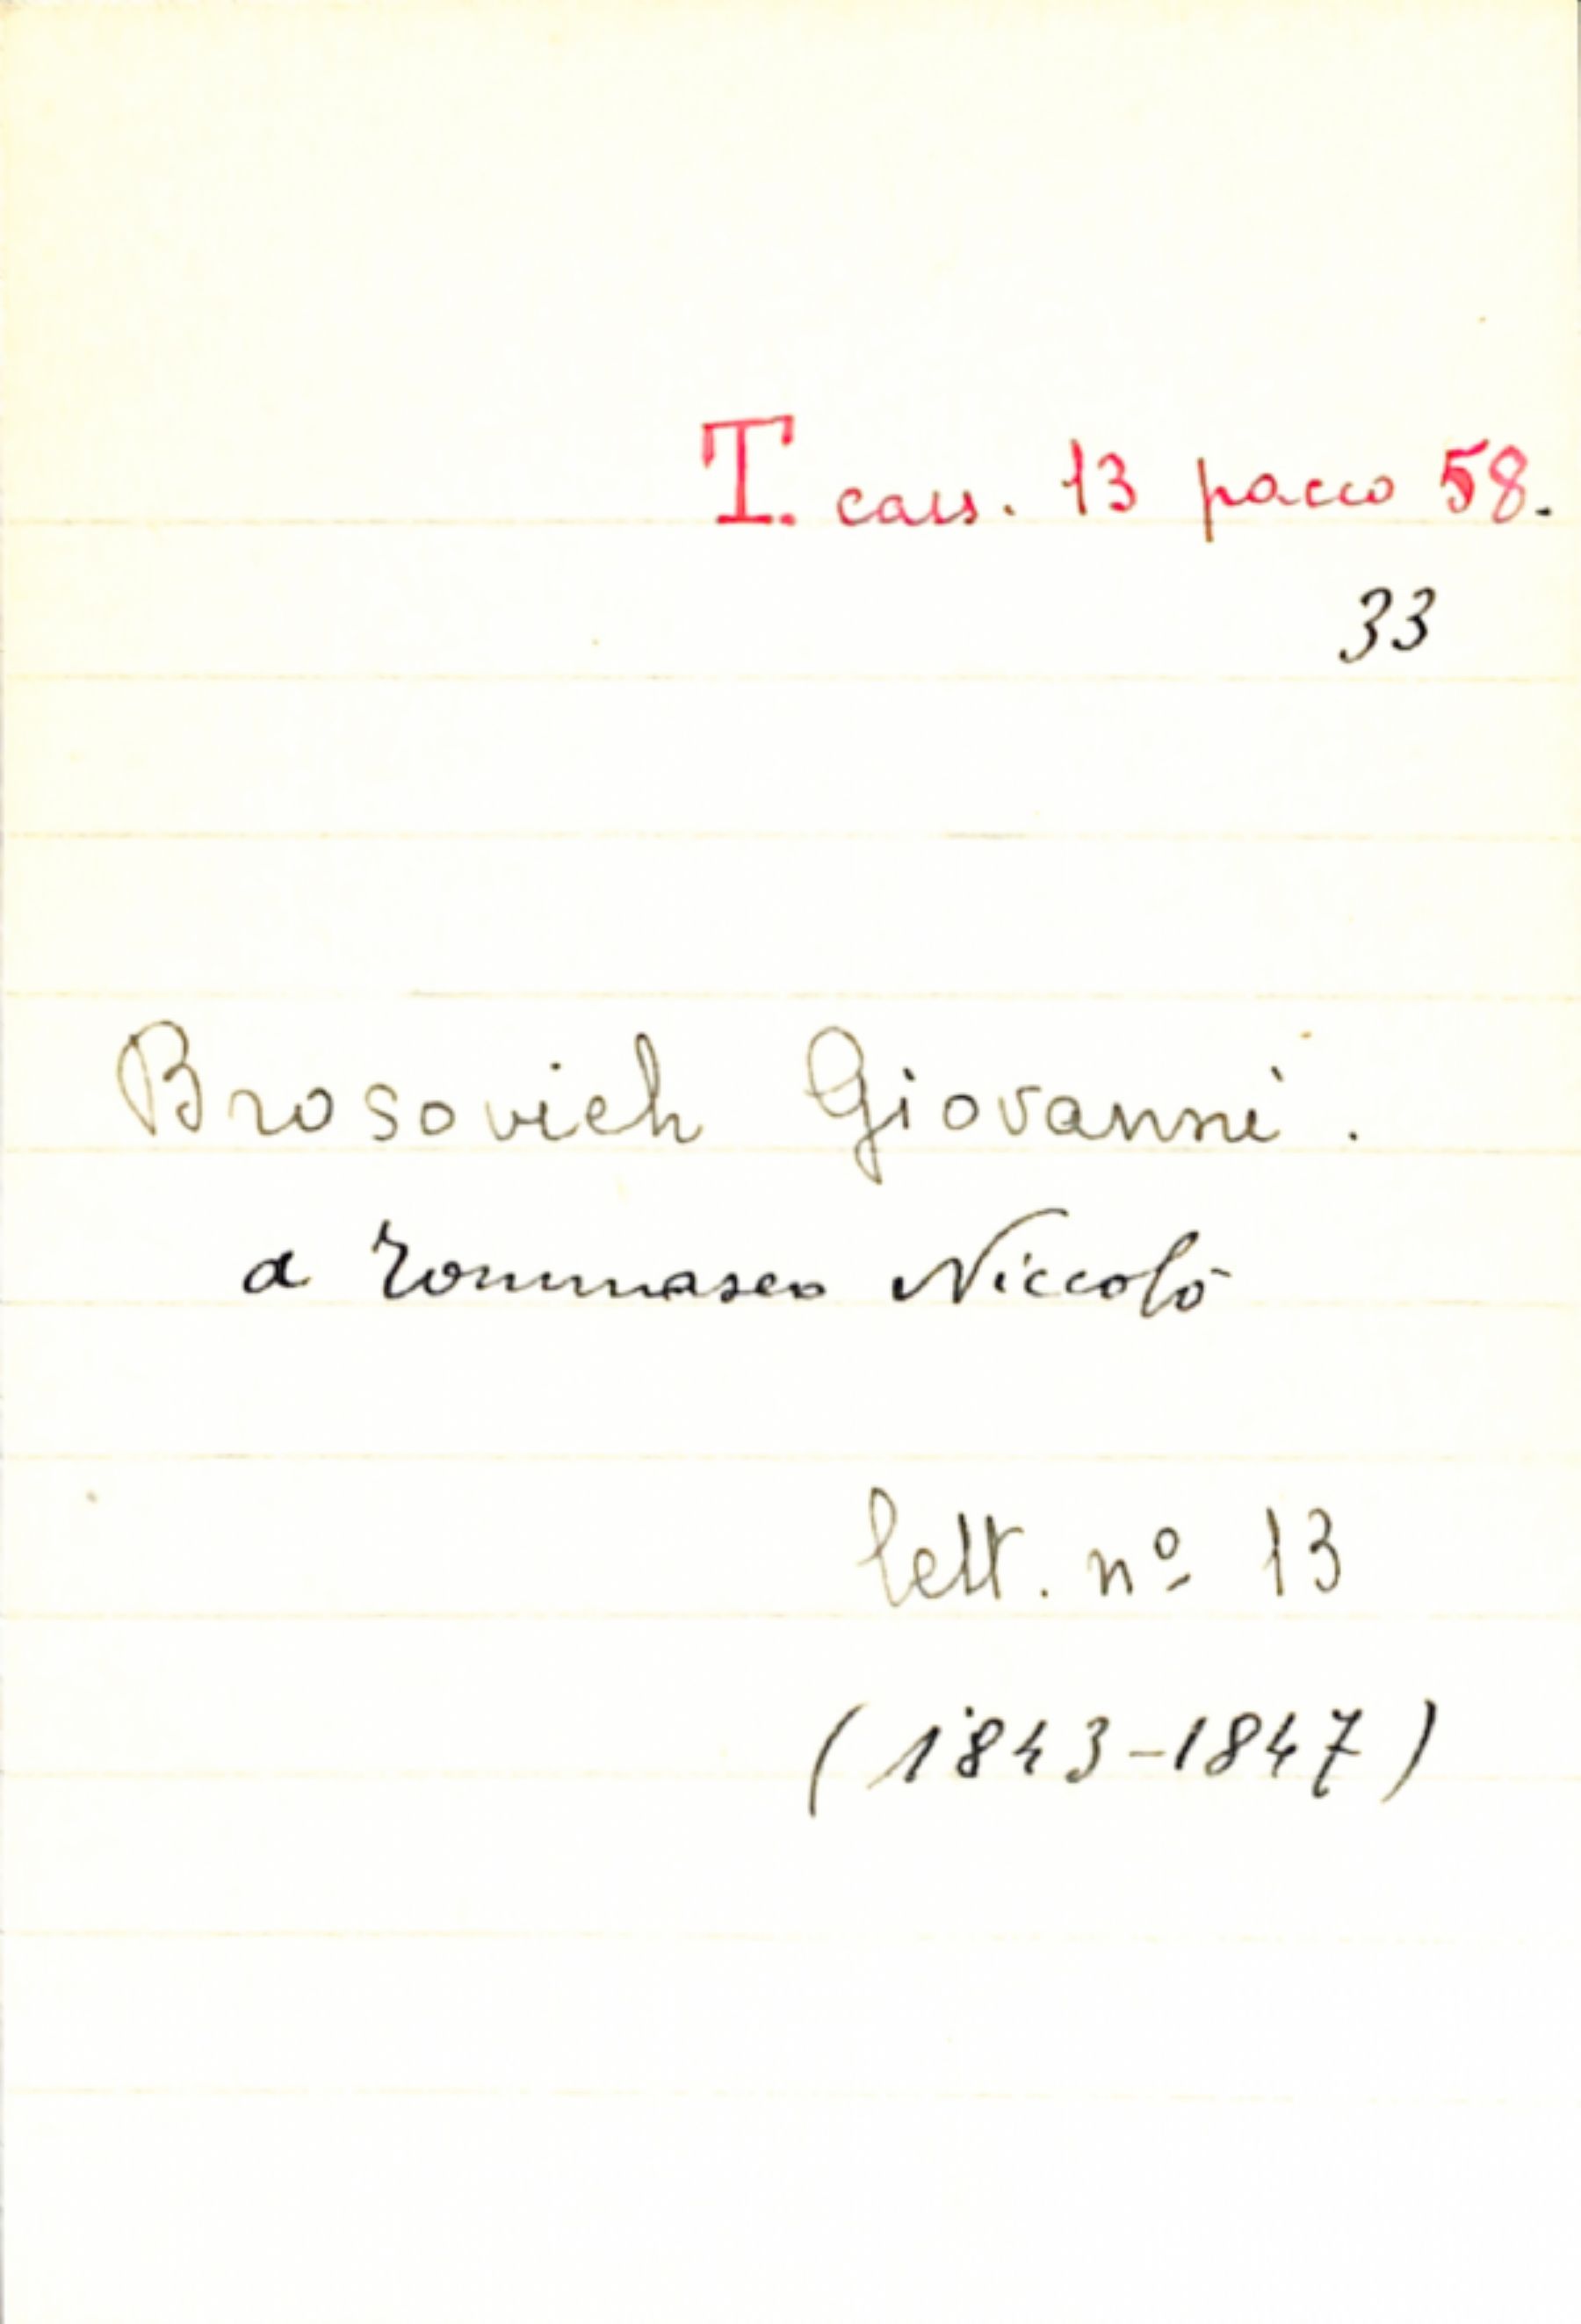 T. cass. 13 pacco 58.
33
Brosovich Giovanni.
a Tommaseo Niccolò
lett. nº 13
(1843-1847)